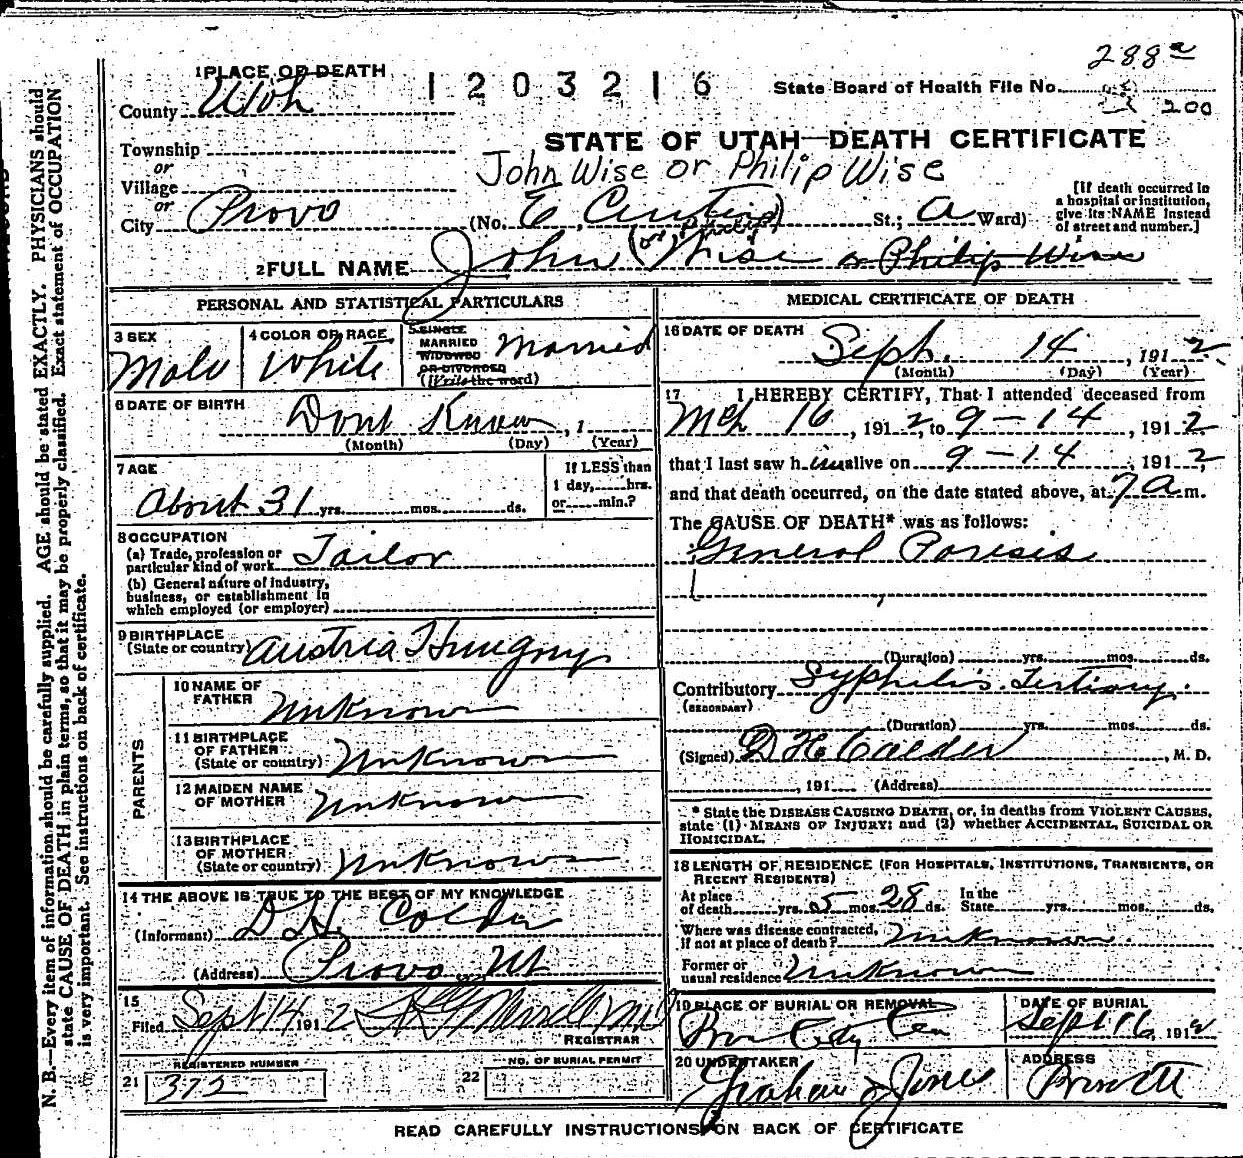 288a
1 PLACE OF DEATH
1203216
State Board of Health File No. 200
County Utah
STATE OF UTAH—DEATH CERTIFICATE
Township
or
John Wise or Philip Wise
Village
or
City Provo
(No. E, Center St.; Ward)
[If death occurred in
a hospital or institution,
give its NAME instead
of street and number.]
2 FULL NAME John (or Philip) Wise or Philip Wise
PERSONAL AND STATISTICAL PARTICULARS
3 SEX
Male
4 COLOR OR RACE
White
5 SINGLE
MARRIED
WIDOWED
OR DIVORCED
(Write the word)
Married
6 DATE OF BIRTH
Dont Know, 1
(Month) (Day) (Year)
7 AGE
About 31 yrs. mos. ds.
If LESS than
1 day, hrs.
or min.?
8 OCCUPATION
(a) Trade, profession or
particular kind of work Tailor
(b) General nature of industry,
business, or establishment in
which employed (or employer)
9 BIRTHPLACE
(State or country) Austria Hungry
PARENTS
10 NAME OF
FATHER Unknown
11 BIRTHPLACE
OF FATHER
(State or country) Unknown
12 MAIDEN NAME
OF MOTHER Unknown
13 BIRTHPLACE
OF MOTHER
(State or country) Unknown
14 THE ABOVE IS TRUE TO THE BEST OF MY KNOWLEDGE
(Informant) D H Calder
(Address) Provo Ut
15
Filed Sept 14 1912
REGISTRAR
REGISTERED NUMBER
21 372
NO. OF BURIAL PERMIT
22
MEDICAL CERTIFICATE OF DEATH
16 DATE OF DEATH
Sept. 14, 1912
(Month) (Day) (Year)
17 I HEREBY CERTIFY, That I attended deceased from
Mch 16, 1912, to 9-14, 1912
that I last saw him alive on 9-14, 1912,
and that death occurred, on the date stated above, at 7 A m.
The CAUSE OF DEATH* was as follows:
General Paresis
(Duration) yrs. mos. ds.
Contributory Syphilis. Tertiary.
(SECONDARY)
(Duration) yrs. mos. ds.
(Signed) D H Calder, M. D.
, 191 (Address)
* State the DISEASE CAUSING DEATH, or, in deaths from VIOLENT CAUSES,
state (1) MEANS OF INJURY; and (2) whether ACCIDENTAL, SUICIDAL OR
HOMICIDAL.
18 LENGTH OF RESIDENCE (FOR HOSPITALS, INSTITUTIONS, TRANSIENTS, OR
RECENT RESIDENTS)
At place
of death yrs. 5 mos. 28 ds.
In the
State yrs. mos. ds.
Where was disease contracted,
if not at place of death? Unknown
Former or
usual residence Unknown
19 PLACE OF BURIAL OR REMOVAL
Prov City Cem
DATE OF BURIAL
Sept 16, 1912
20 UNDERTAKER
Graham & Jones
ADDRESS
READ CAREFULLY INSTRUCTIONS ON BACK OF CERTIFICATE
N. B.—Every item of information should be carefully supplied. AGE should be stated EXACTLY. PHYSICIANS should
state CAUSE OF DEATH in plain terms, so that it may be properly classified. Exact statement of OCCUPATION
is very important. See instructions on back of certificate.